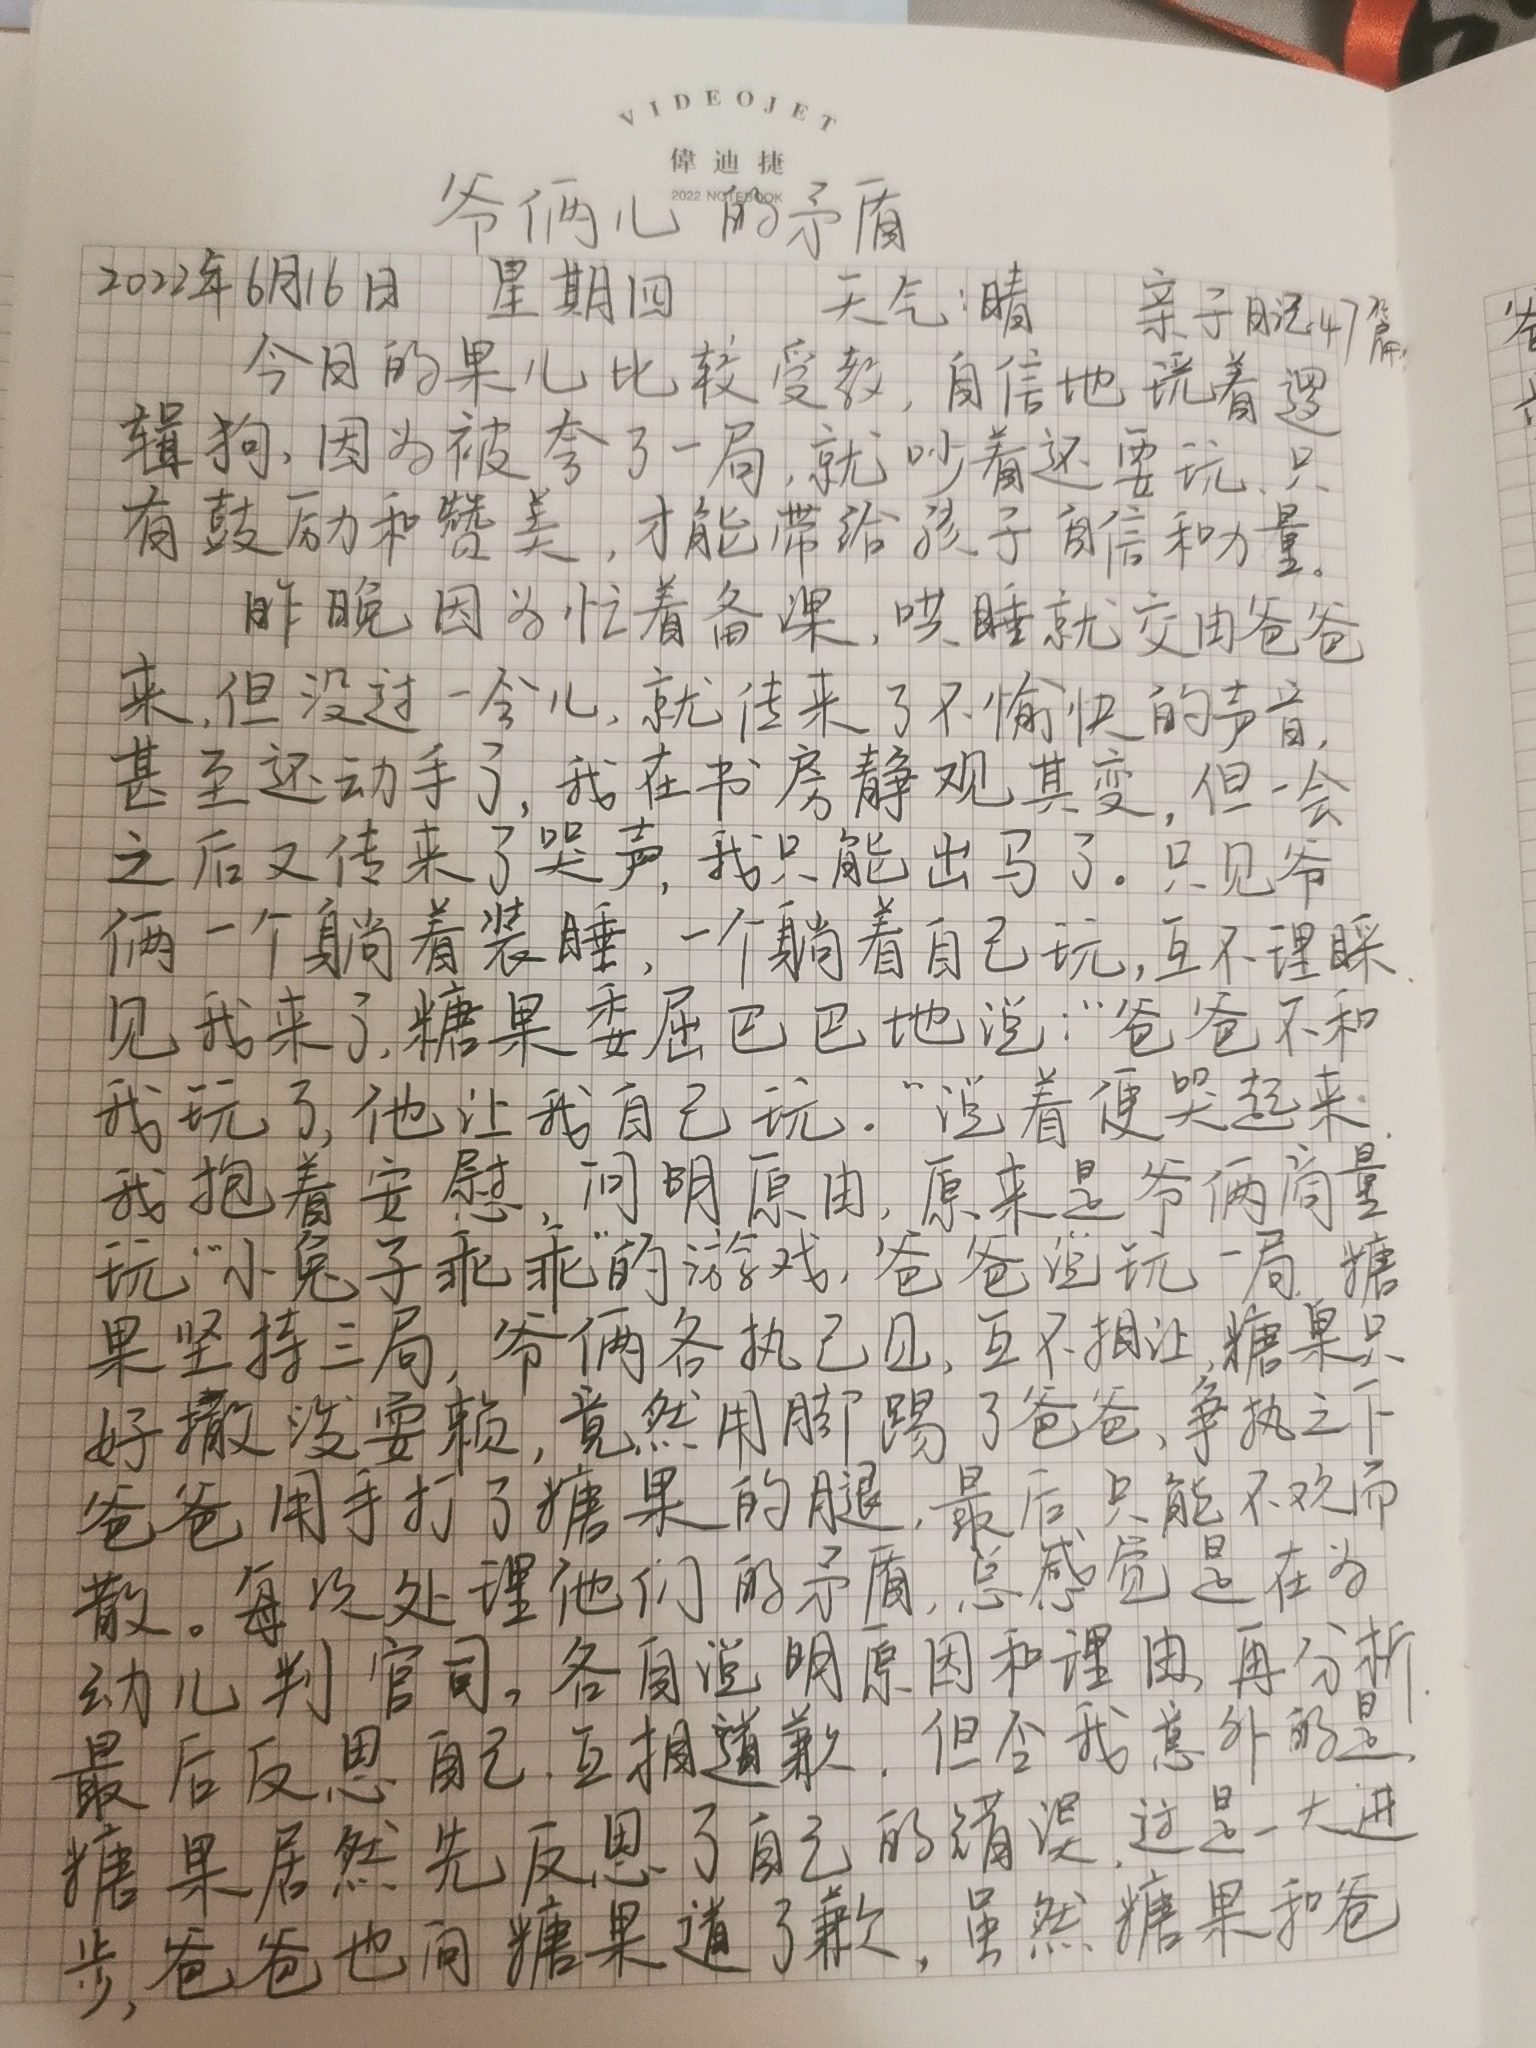 VIDEOJET
偉迪捷
2022 NOTEBOOK
爷俩儿的矛盾
2022年6月16日 星期四 天气:晴 亲子日记47篇
今日的果儿比较受教,自信地玩着逻
辑狗,因为被夸了一局,就吵着还要玩,只
有鼓励和赞美,才能带给孩子自信和力量。
昨晚因为忙着备课,哄睡就交由爸爸
来,但没过一会儿,就传来了不愉快的声音,
甚至还动手了,我在书房静观其变,但一会
之后又传来了哭声,我只能出马了。只见爷
俩一个躺着装睡,一个躺着自己玩,互不理睬.
见我来了,糖果委屈巴巴地说:“爸爸不和
我玩了,他让我自己玩.“说着便哭起来.
我抱着安慰,问明原由,原来是爷俩商量
玩“小兔子乖乖”的游戏,爸爸说玩一局,糖
果坚持三局,爷俩各执己见,互不相让,糖果只
好撒泼耍赖,竟然用脚踢了爸爸,争执之下
爸爸用手打了糖果的腿,最后只能不欢而
散。每次处理他们的矛盾,总感觉是在为
幼儿判官司,各自说明原因和理由,再分析.
最后反思自己,互相道歉.但令我意外的是,
糖果居然先反思了自己的错误,这是一大进
步,爸爸也向糖果道了歉,虽然糖果和爸
爸